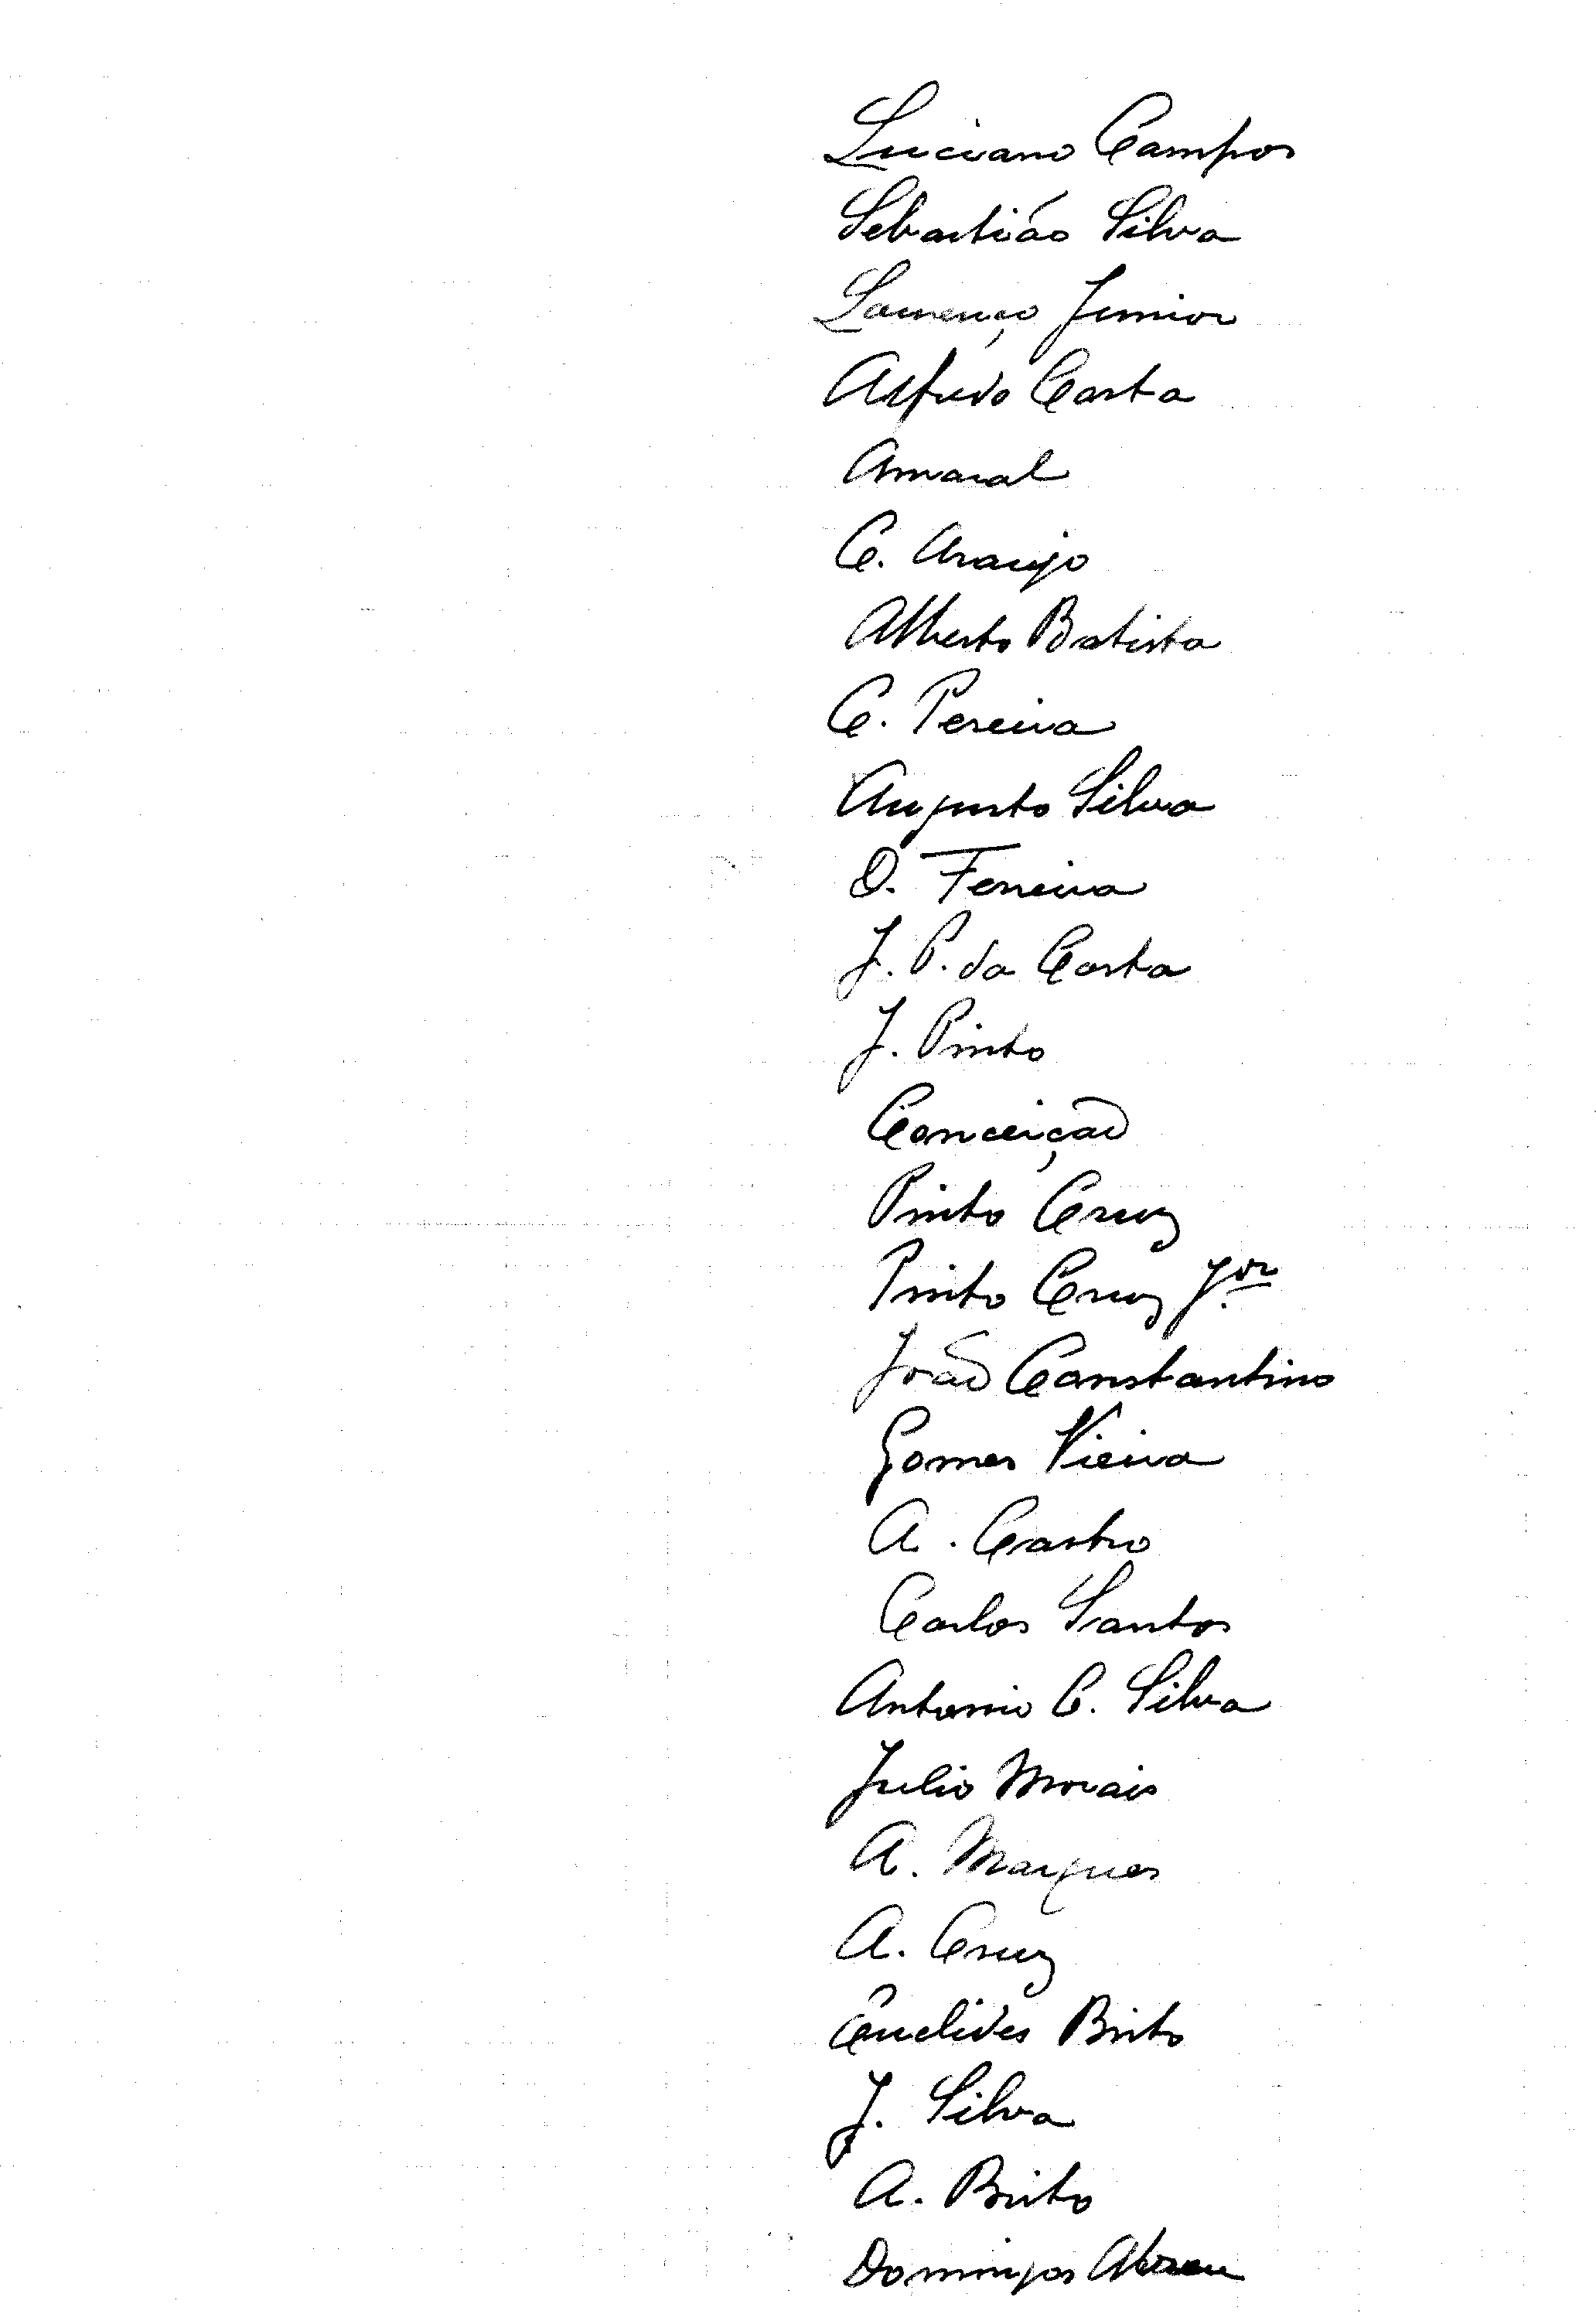 Luciano Campos
Sebastião Silva
Lourenço Junior
Alfredo Costa
Amaral
C. Araujo
Alberto Batista
C. Pereira
Augusto Silva
D. Ferreira
J. P. da Costa
J. Pinto
Conceição
Pinto Cruz
Pinto Cruz Jor
João Constantino
Gomes Vieira
A. Castro
Carlos Santos
Antonio C. Silva
Julio Morais
A. Marques
A. Cruz
Euclides Brito
J. Silva
A. Brito
Domingos Abreu